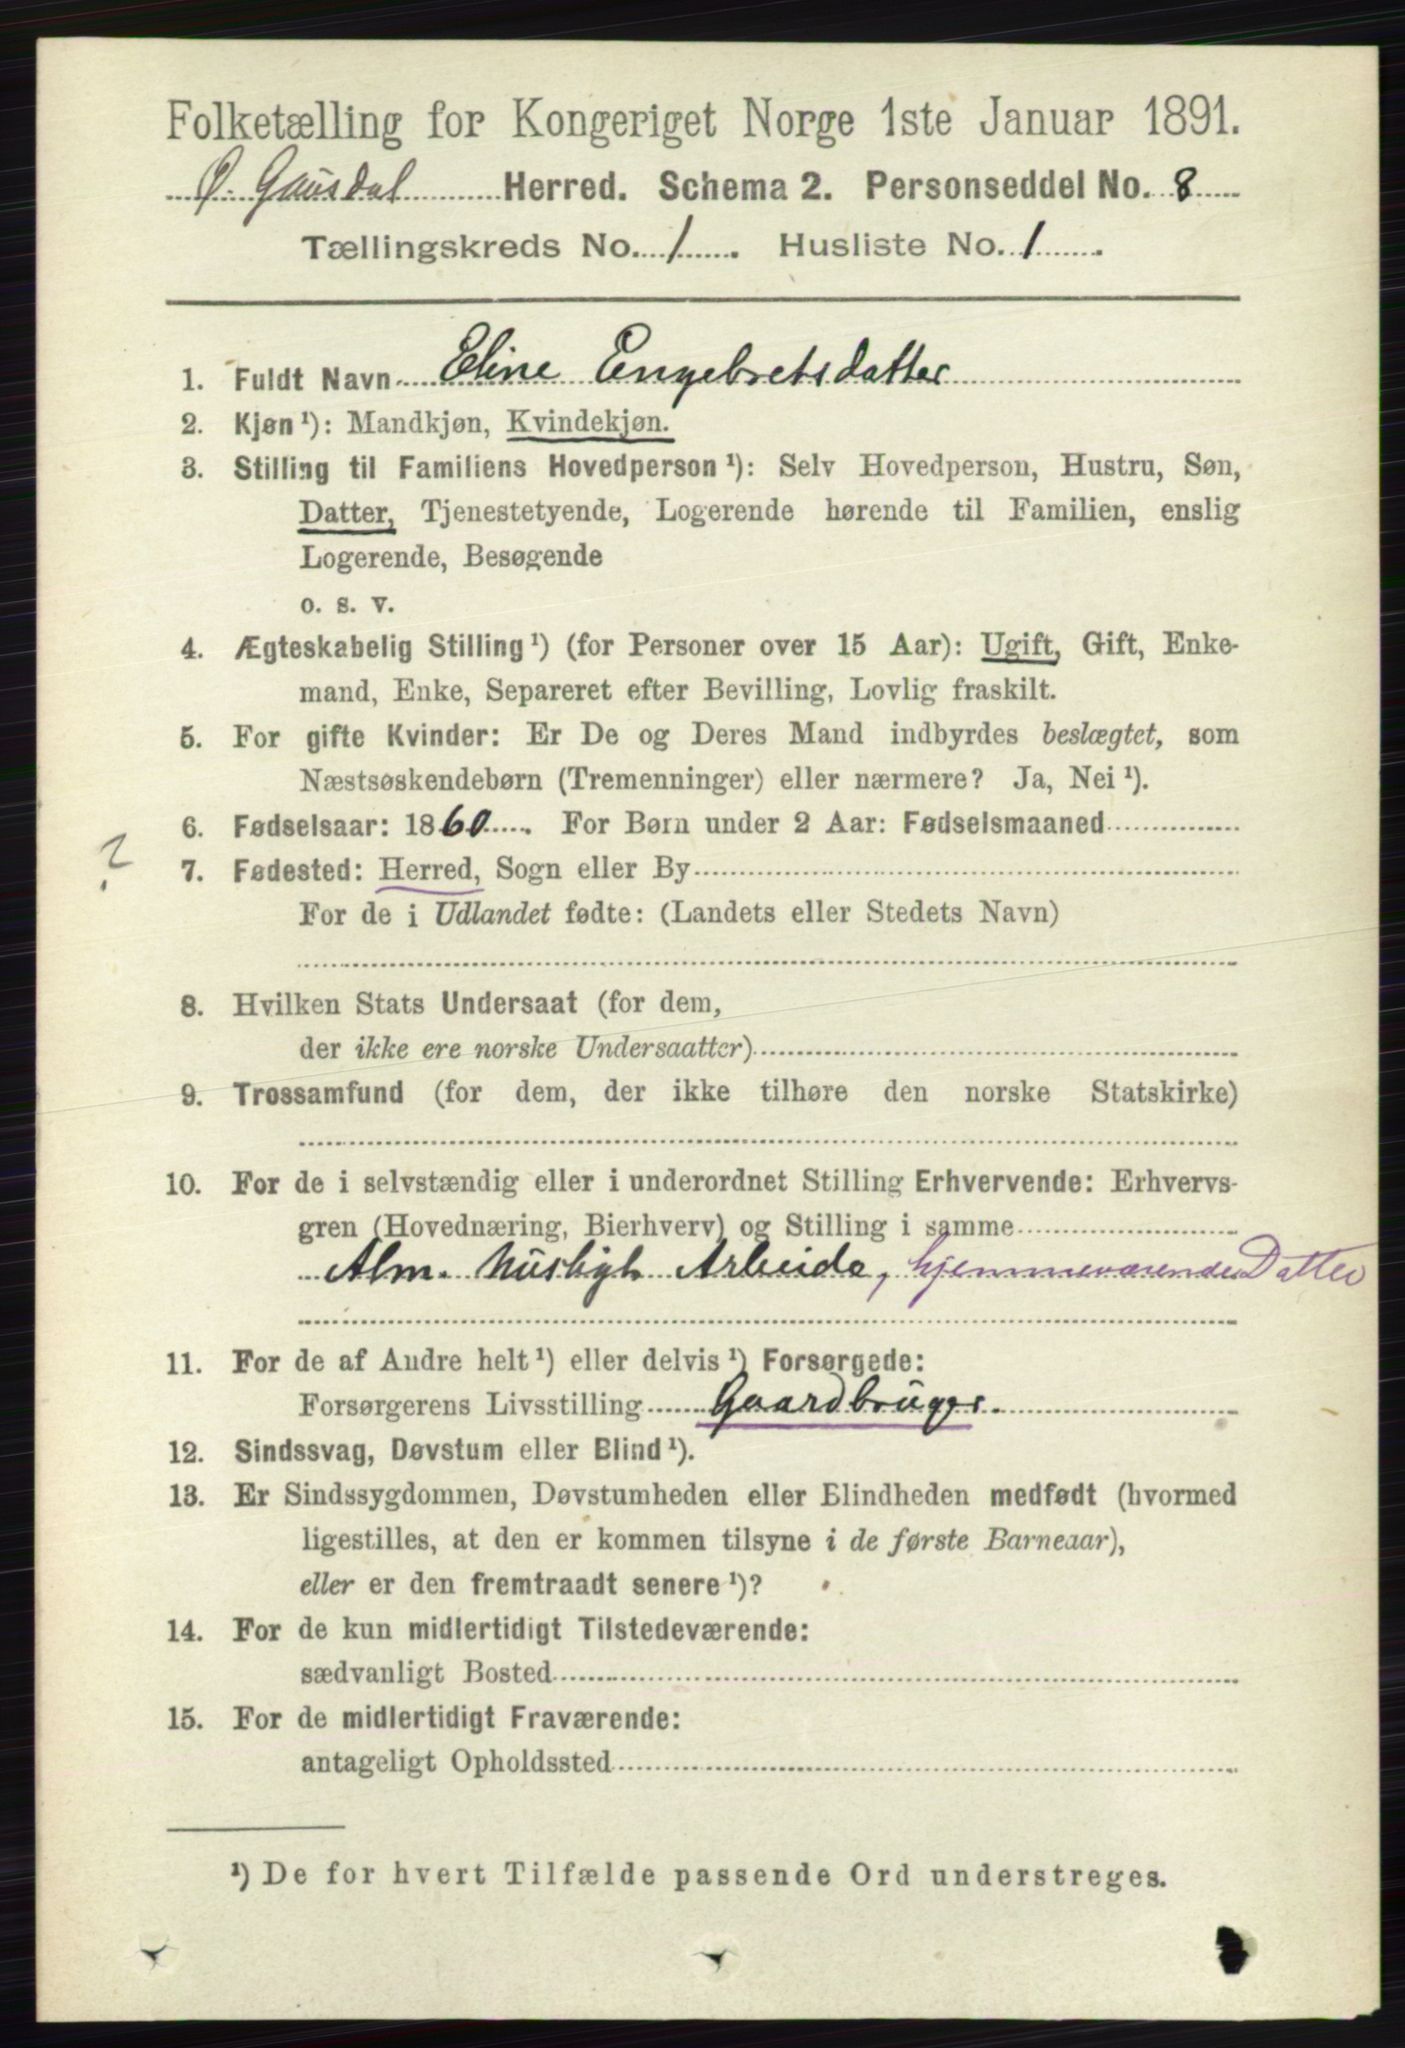 Folketælling for Kongeriget Norge 1ste Januar 1891.
Ø. Gausdal Herred. Schema 2. Personseddel No. 8
Tællingskreds No. 1. Husliste No. 1.
1. Fuldt Navn Eline Engebretsdatter
2. Kjøn ¹): Mandkjøn, Kvindekjøn.
3. Stilling til Familiens Hovedperson ¹): Selv Hovedperson, Hustru, Søn,
Datter, Tjenestetyende, Logerende hørende til Familien, enslig
Logerende, Besøgende
o. s. v.
4. Ægteskabelig Stilling ¹) (for Personer over 15 Aar): Ugift, Gift, Enke-
mand, Enke, Separeret efter Bevilling, Lovlig fraskilt.
5. For gifte Kvinder: Er De og Deres Mand indbyrdes beslægtet, som
Næstsøskendebørn (Tremenninger) eller nærmere? Ja, Nei ¹).
6. Fødselsaar: 1860. For Børn under 2 Aar: Fødselsmaaned
?
7. Fødested: Herred, Sogn eller By
For de i Udlandet fødte: (Landets eller Stedets Navn)
8. Hvilken Stats Undersaat (for dem,
der ikke ere norske Undersaatter)
9. Trossamfund (for dem, der ikke tilhøre den norske Statskirke)
10. For de i selvstændig eller i underordnet Stilling Erhvervende: Erhvervs-
gren (Hovednæring, Bierhverv) og Stilling i samme
Alm. husligt Arbeide, hjemmeværende Datter
11. For de af Andre helt ¹) eller delvis ¹) Forsørgede:
Forsørgerens Livsstilling Gaardbruger.
12. Sindssvag, Døvstum eller Blind ¹).
13. Er Sindssygdommen, Døvstumheden eller Blindheden medfødt (hvormed
ligestilles, at den er kommen tilsyne i de første Barneaar),
eller er den fremtraadt senere ¹)?
14. For de kun midlertidigt Tilstedeværende:
sædvanligt Bosted
15. For de midlertidigt Fraværende:
antageligt Opholdssted
¹) De for hvert Tilfælde passende Ord understreges.